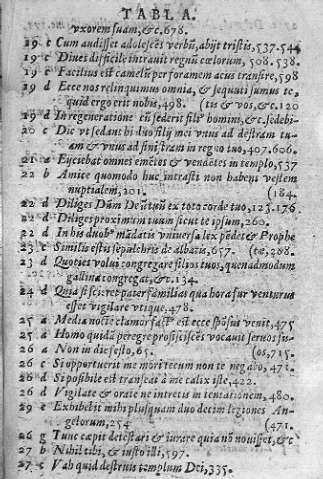 TABLA.
vxorem suam, &c. 676.
19 c Cum audisset adolescẽs verbũ, abijt tristis, 537. 544
19 c Diues difficile intrauit regnũ cœlorum, 508. 538.
19 c Facilius est camelũ per foramem acus transire, 598
19 d Ecce nos relinquimus omnia, & sequuti sumus te,
quid ergo erit nobis, 498. (tis & vos, &c. 120
19 d In regeneratione cũ sederit fili⁹ homini, &c. sedebi-
20 c Dic vt sedant bi duo filij mei vnus ad destram tu-
am & vnus ad sinistram in regno tuo, 407. 606.
21 a Eijciebat omnes emẽtes & vendẽtes in templo, 537
22 b Amice quomodo huc intrasti non habens vestem
nuptialem, 201. (184.
22 d Diliges Dũm Deũ tuũ ex toto corde tuo, 123. 176
22 d Diliges proximum tuum sicut te ipsum, 260.
22 d In his duob⁹ mãdatis vniuersa lex pẽdet & Prophe
23 c Similis estis sepulchris de albatis, 657. (tæ, 288.
23 d Quoties volui congregare filios tuos, quenadmodum
gallina congregat, &c. 134.
24 d Quia si sciret pater familias qua hora fur venturus
esset vigilare vtique, 478.
25 a Media nocte clamor fact⁹ est ecce spõsus venit, 475
25 a Homo quidã peregre proficiscẽs vocauit seruos su-
26 a Non in die festo, 65. (os, 715.
26 c Si opportuerit me mori tecum non te negabo, 471
26 d Si posibile est transeat à me calix iste, 422.
26 d Vigilate & orate ne intretis in tentationem, 480.
29 e Exhibebit mihi plusquam duo decim legiones An-
gelorum, 254 (471.
26 g Tunc cæpit detestari & iurare quia nõ nouisset, &c
27 b Nihil tibi, & iusto illi, 597.
27 c Vah quid destruis templum Dei, 335.